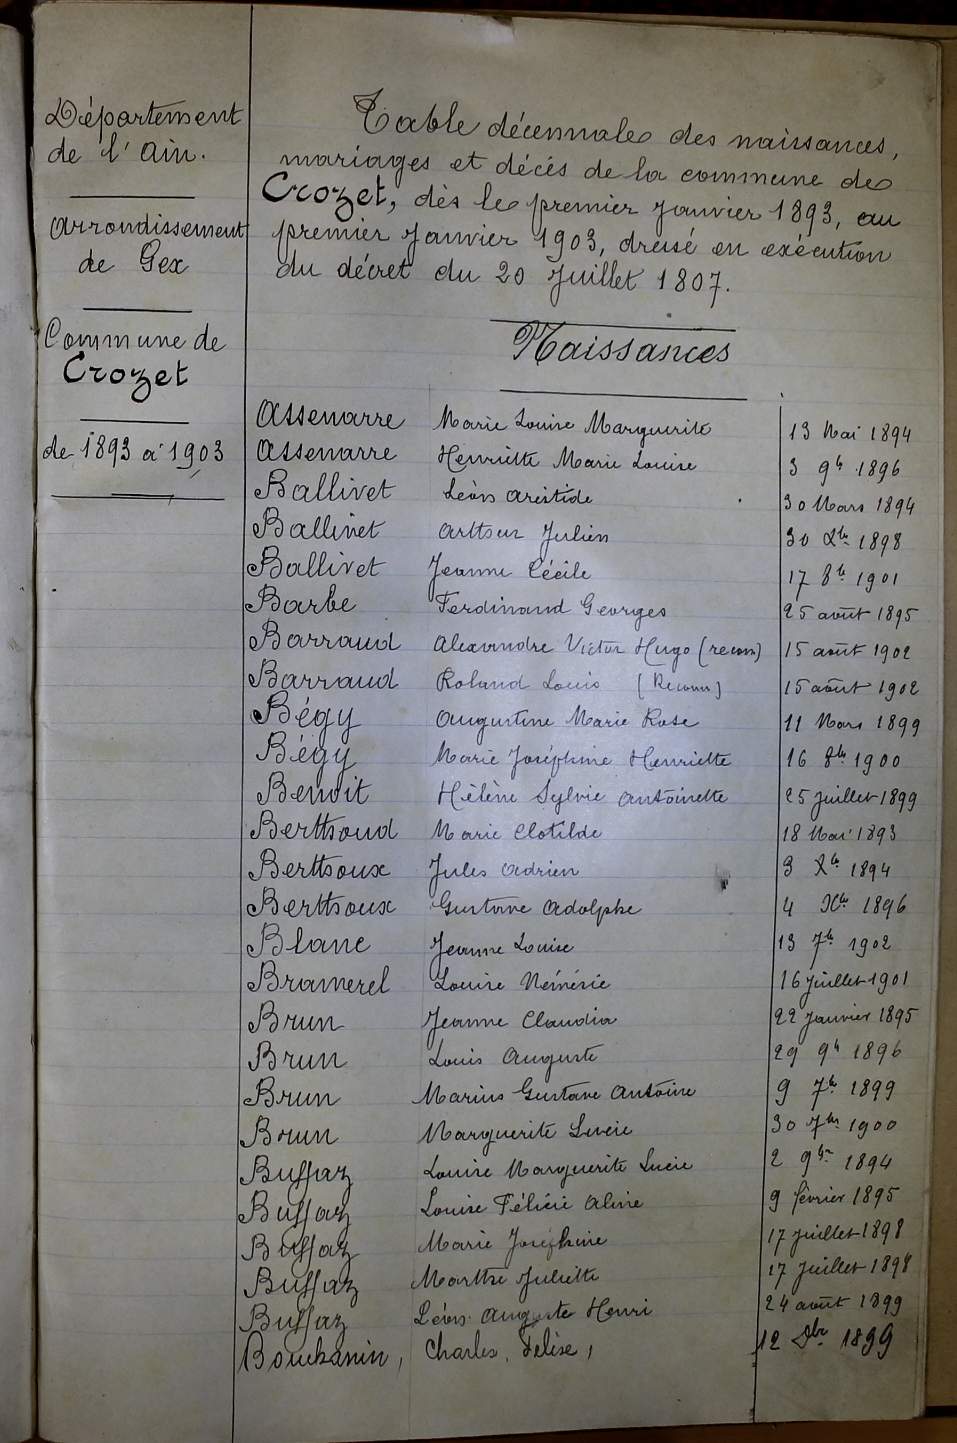 Département
de l'Ain.
Arrondissement
de Gex
Commune de
Crozet
de 1893 à 1903
Table décennale des naissances,
mariages et décés de la commune de
Crozet, dès le premier Janvier 1893, au
premier Janvier 1903, dressé en exécution
du décret du 20 Juillet 1807.
Naissances
Assenarre Marie Louise Marguerite 13 Mai 1894
Assenarre Henriette Marie Louise 3 9bre 1896
Ballivet Léon Aristide 30 Mars 1894
Ballivet Arthur Julien 30 Xbre 1898
Ballivet Jeanne Cécile 17 8bre 1901
Barbe Ferdinand Georges 25 août 1895
Barraud Alexandre Victor Hugo (reconn) 15 août 1902
Barraud Roland Louis (Reconn) 15 août 1902
Bégy Augustine Marie Rose 11 Mars 1899
Bégy Marie Joséphine Henriette 16 8bre 1900
Benoit Hélène Sylvie Antoinette 25 Juillet 1899
Berthoud Marie Clotilde 18 Mai 1893
Berthoux Jules Adrien 3 Xbre 1894
Berthoux Gustave Adolphe 4 Xbre 1896
Blanc Jeanne Louise 13 7bre 1902
Bramerel Louise Némésie 16 Juillet 1901
Brun Jeanne Claudia 22 Janvier 1895
Brun Louis Auguste 29 9bre 1896
Brun Marius Gustave Antoine 9 7bre 1899
Brun Marguerite Lucie 30 7bre 1900
Buffaz Louise Marguerite Lucie 2 9bre 1894
Buffaz Louise Félicie Aline 9 février 1895
Buffaz Marie Joséphine 17 Juillet 1898
Buffaz Marthe Juliette 17 Juillet 1898
Buffaz Léon Auguste Henri 24 août 1899
Charles, 12 1899